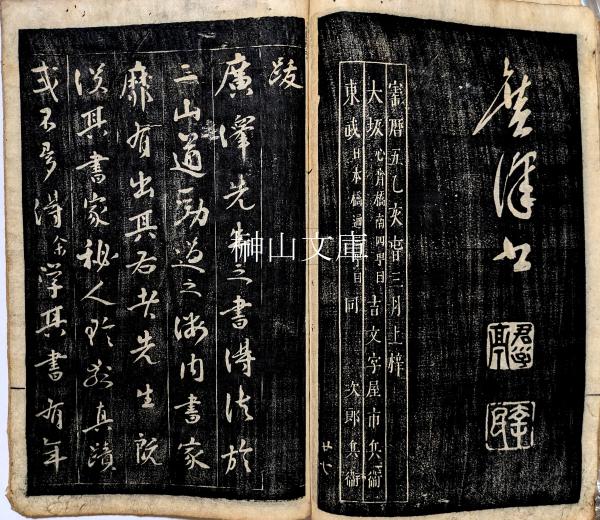 廣澤書
寶暦五乙亥歳三月上梓
大坂心斎橋南四丁目 吉文字屋市兵衛
東武日本橋通三丁目 同 次郎兵衛
跋
廣澤先生之書得法於
二山道之海内書家
靡有出其右者先生既
没其書家秘人珍故真蹟
或不多得余学其書有年
榊山文庫